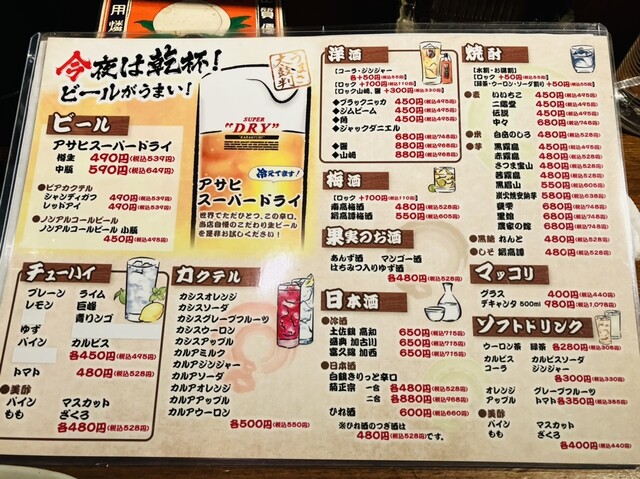 今夜は乾杯!
ビールがうまい!
うまさに
太鼓判
SUPER
"DRY"
冷えてます!
アサヒ
スーパードライ
世界でただひとつ、この辛口。
当店自慢のこだわり生ビール
を是非お試しください!
ビール
アサヒスーパードライ
樽生 490円(税込539円)
中瓶 590円(税込649円)
●ビアカクテル
シャンディガフ 490円(税込539円)
レッドアイ 490円(税込539円)
●ノンアルコールビール
ノンアルコールビール 小瓶
450円(税込495円)
チューハイ
プレーン ライム
レモン 巨峰
青リンゴ
ゆず
パイン カルピス
各450円(税込495円)
トマト 480円(税込528円)
●美酢
パイン マスカット
もも ざくろ
各480円(税込528円)
カクテル
カシスオレンジ
カシスソーダ
カシスグレープフルーツ
カシスウーロン
カシスアップル
カルアミルク
カルアジンジャー
カルアソーダ
カルアオレンジ
カルアアップル
カルアウーロン
各500円(税込550円)
洋酒
【コーラ・ジンジャー
各+50円(税込55円)】
【ロック +100円(税込110円)】
【ロック山崎、響 +300円(税込330円)】
◆ブラックニッカ 450円(税込495円)
◆ジムビーム 450円(税込495円)
◆角 450円(税込495円)
◆ジャックダニエル
680円(税込748円)
◆響 880円(税込968円)
◆山崎 880円(税込968円)
梅酒
【ロック +100円(税込110円)】
南高梅酒 480円(税込528円)
鍛高譚梅酒 550円(税込605円)
果実のお酒
あんず酒 マンゴー酒
はちみつ入りゆず酒
各480円(税込528円)
日本酒
●冷酒
土佐鶴 高知 650円(税込715円)
盛典 加古川 650円(税込715円)
富久錦 加西 650円(税込715円)
●日本酒
白鶴きりっと辛口
菊正宗 一合 各480円(税込528円)
二合 各880円(税込968円)
ひれ酒 600円(税込660円)
※ひれ酒のつぎ酒は
480円(税込528円)です。
焼酎
【水割・お湯割】
【ロック +50円(税込55円)】
【緑茶・ウーロン・ソーダ割り +50円(税込55円)】
●麦 いいちこ 450円(税込495円)
二階堂 450円(税込495円)
伝説 450円(税込495円)
中々 680円(税込748円)
●米 白岳のしろ 480円(税込528円)
●芋 黒霧島 450円(税込495円)
赤霧島 480円(税込528円)
さつま宝山 480円(税込528円)
茜霧島 480円(税込528円)
黒眉山 550円(税込605円)
炭火焼安納芋 580円(税込638円)
蔵 480円(税込528円)
里娘 480円(税込528円)
農家の嫁 680円(税込748円)
●黒糖 れんと 480円(税込528円)
●しそ 鍛高譚 480円(税込528円)
マッコリ
グラス 400円(税込440円)
デキャンタ 500ml 980円(税込1,078円)
ソフトドリンク
ウーロン茶 緑茶 各280円(税込308円)
カルピス カルピスソーダ
コーラ ジンジャー
各300円(税込330円)
オレンジ グレープフルーツ
アップル トマト 各350円(税込385円)
●美酢
パイン マスカット
もも ざくろ
各400円(税込440円)